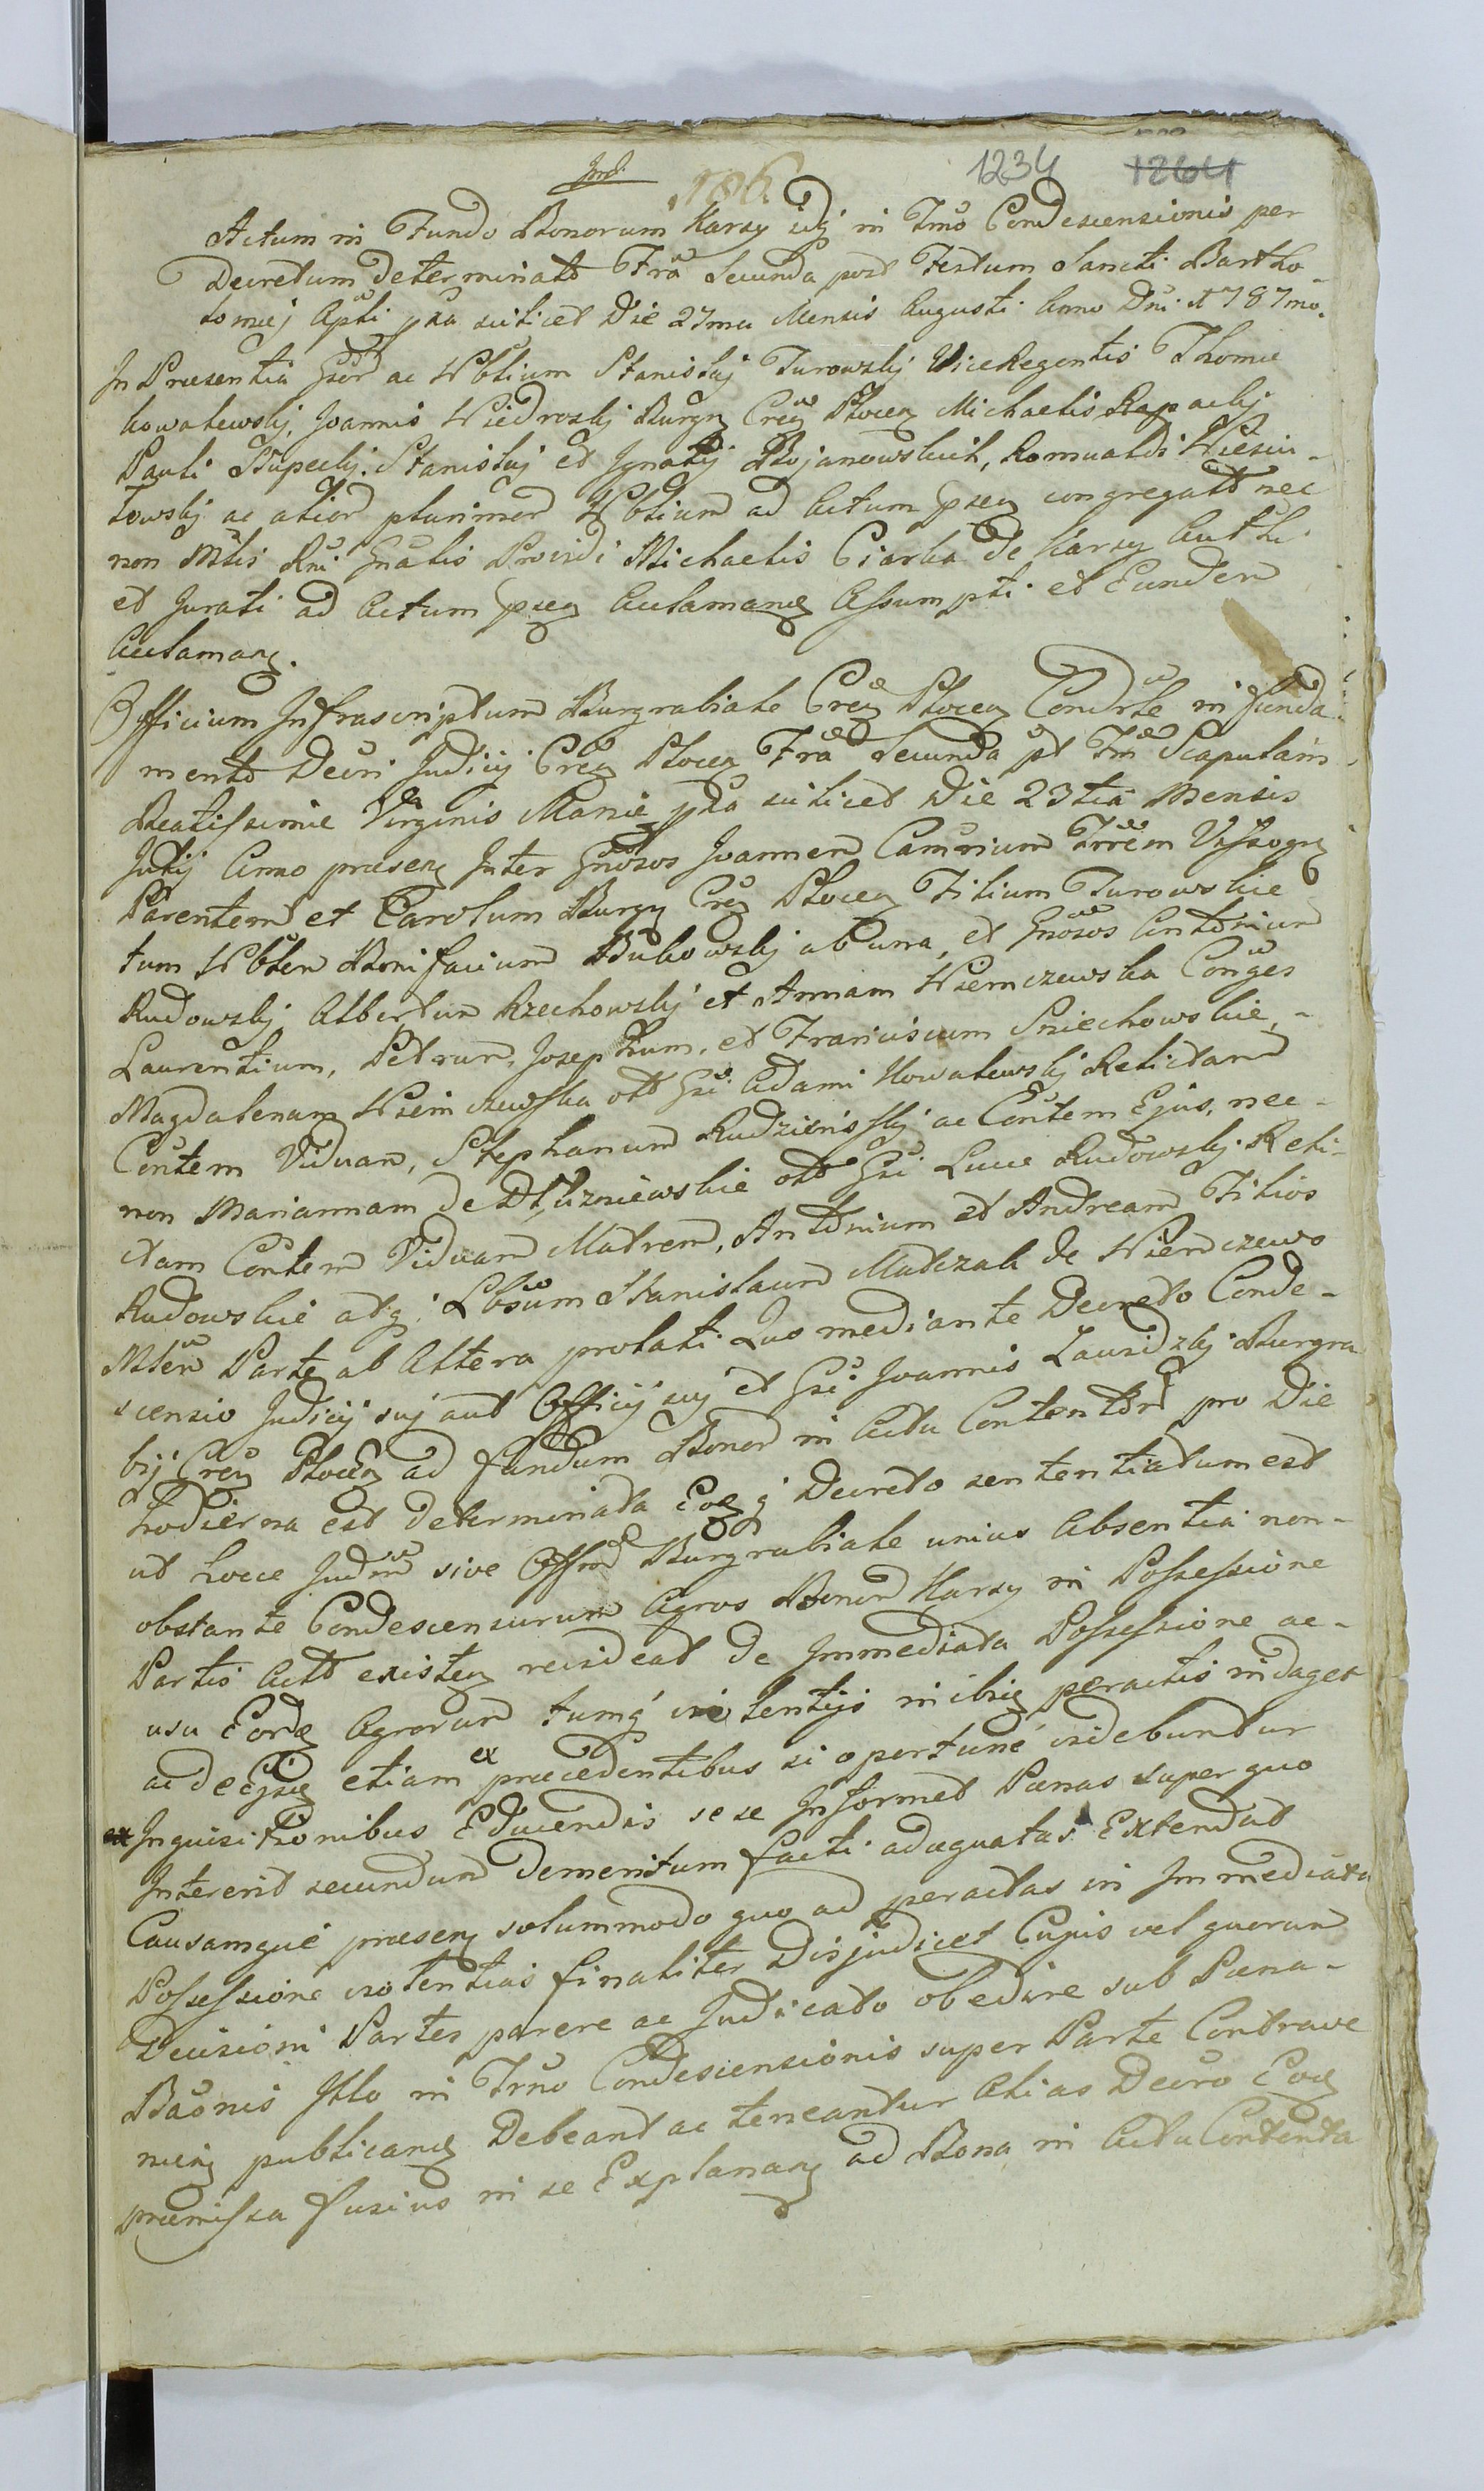 Ind.
186.
1234 1264
Actum in Fundo Bonorum Karsy idq in Tmo Condescensionis per
Decretum determinato Fra Secunda post Festum Sancti Bartho-
lomej Apli pxa scilicet Die 27ma Mensis Augusti Anno Dni 1787mo.
In Praesentia Gsor ac Nblium Stanislaj Turowskj ViceRegentis Thomae
Kowalewskj, Joannis Niedroskj Burgr Cren Plocen Michaelis Rapackj
Pauli Slupeckj. Stanislaj et Ignatij Bojanowskich, Romualdi Wiesio-
lowskj ac alior plurimor Nblium ad Actum psen congregato nec
non Mtlis Rni Gnalis Providi Michaelis Ciarka de Karsy Auth.
et Jurati ad Actum psen Acclamang Assumpti et Eundem
Acclamang.
Officium Infrascriptum Burgrabiale Cren Plocen Condrle in funda-
mento Decri Judicij Cren Plocen Fra Secunda pt Fm Scapularis
Beatissimae Virginis Mariae pxa scilicet Die 23tia Mensis
Julij Anno praesen Inter Gnosos Joannem Camrium Trrem Vissogrn
Parentem et Carolum Burgr Cren Plocen Filium Turowskie
tum Nblem Bonifacium Bukowskj ab una, et Gnosos Antonium
Rudowskj Albertum Rzechowskj et Annam Niemczewska Conges
Laurentium, Petrum, Josephum, et Franciscum Sniechowskie, -
Magdalenam Niemczewska olt Gsi Adami Kowalewskj Relictam
Contem Viduam, Stephanum Rudzienskj ac Contem Ejus, nec-
non Mariannam de Dłużniewskie olt Gsi Lucae Rudowskj Reli-
ctam Contem Viduam Matrem, Antonium et Andream Filios
Rudowskie atq Lbsum Stanislaum Matczak de Niemczewo
Mlem Parte ab Altera prolati Quo mediante Decreto Conde-
scensio Judicij suj aut Officij suj et Gsi Joannis Zawidzkj Burgra
bij Cren Plocen ad fundum Bonor in Actu Contentor pro Die
hodierna est determinata Eoq q Decreto sententiatum est
ut hocce Judm sive Offm Burgrabiale unius Absentia non-
obstante Condescensurum Agros Bonor Karsy in Possessione
Partis Actt existen revideat de Immediata Possessione ac-
usu Eord Agrorum tumq violentijs in ibiq peractis indaget
ac de Ejsq etiam ex praecedentibus si oportune videbuntur
Inquisitionibus Educendis sese Informet Paenas super quo
Intererit secundum Demeritum facti adaequatas Extendat
Causamque praesen solummodo quo ad peractas in Immediata
Possessione violentias finaliter Disjudicet Cujus vel quorum
Decisioni Partes parere ac Judicato obedire sub Paena-
Baonis Illo in Trno Condescensionis super Parte Contrave
nien publicang Debeant ac teneantur Alias Decro Eoq
praemissa fusius in se Explanang ad Bona in Actu Contenta